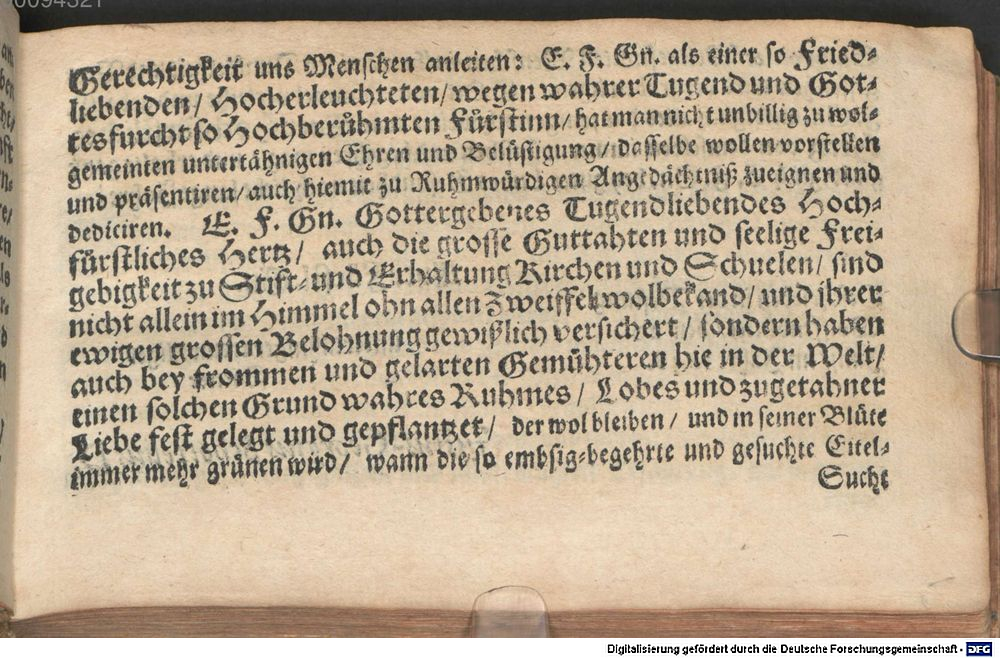 Gerechtigkeit uns Menschen anleiten: E. F. Gn. als einer so Fried-
liebenden/ Hocherleuchteten/ wegen wahrer Tugend und Got-
tesfurcht so Hochberühmten Fürstinn/ hat man nicht unbillig zu wol-
gemeinten untertähnigen Ehren und Belüstigung/ dasselbe wollen vorstellen
und präsentiren/ auch hiemit zu Ruhmwürdigen Angedächtniß zueignen und
dediciren. E. F. Gn. Gottergebenes Tugendliebendes Hoch-
fürstliches Hertz/ auch die grosse Guttahten und seelige Frei-
gebigkeit zu Stift- und Erhaltung Kirchen und Schuelen/ sind
nicht allein im Himmel ohn allen Zweiffel wolbekand/ und ihrer
ewigen grossen Belohnung gewißlich versichert/ sondern haben
auch bey frommen und gelarten Gemühteren hie in der Welt/
einen solchen Grund wahres Ruhmes/ Lobes und zugetahner
Liebe fest gelegt und gepflantzet/ der wol bleiben/ und in seiner Blüte
immer mehr grünen wird/ wann die so embsig-begehrte und gesuchte Eitel-
Sucht
Digitalisierung gefördert durch die Deutsche Forschungsgemeinschaft - DFG